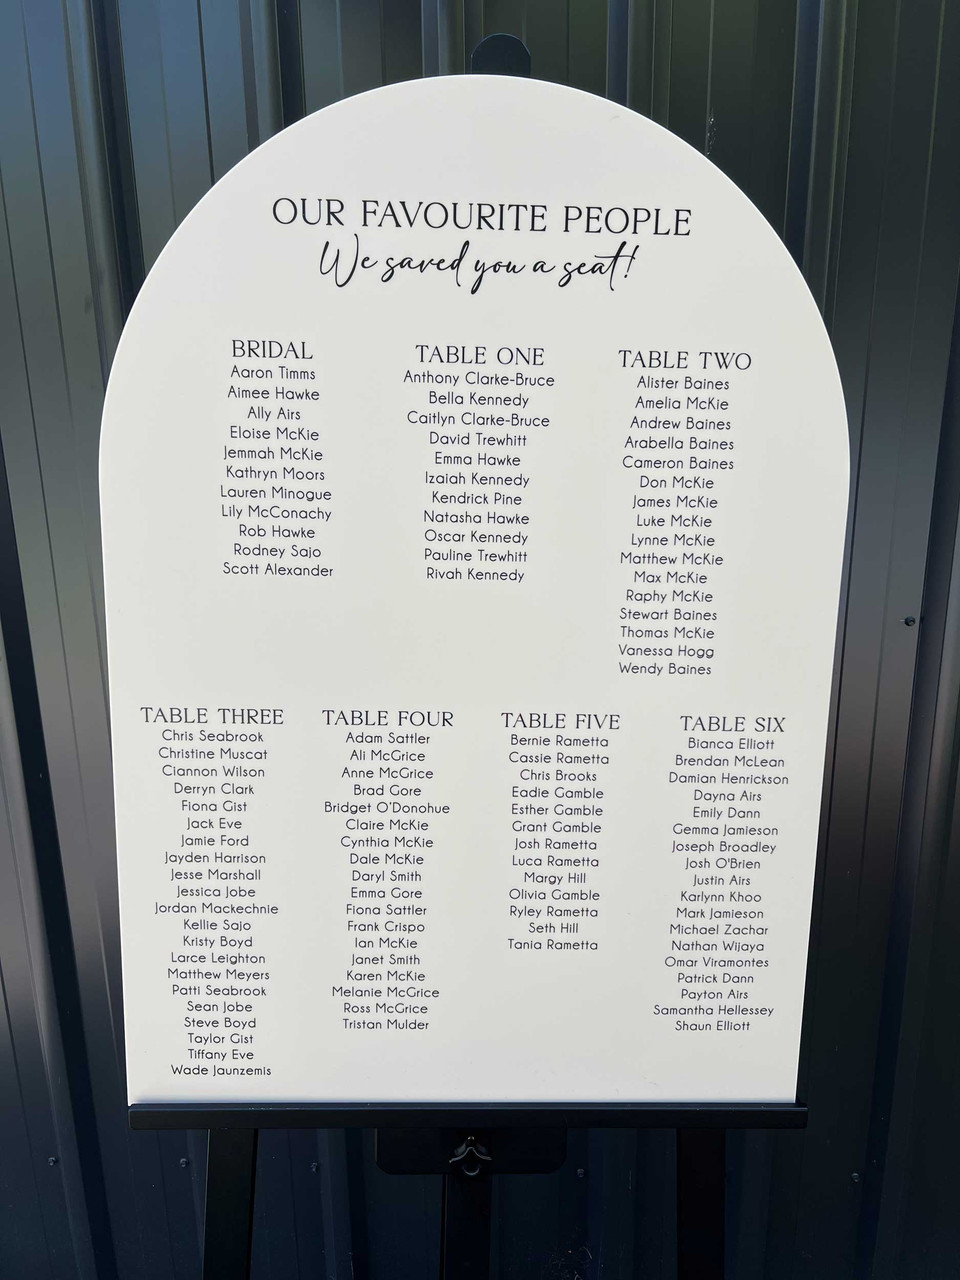 OUR FAVOURITE PEOPLE
We saved you a seat!
BRIDAL
Aaron Timms
Aimee Hawke
Ally Airs
Eloise McKie
Jemmah McKie
Kathryn Moors
Lauren Minogue
Lily McConachy
Rob Hawke
Rodney Sajo
Scott Alexander
TABLE ONE
Anthony Clarke-Bruce
Bella Kennedy
Caitlyn Clarke-Bruce
David Trewhitt
Emma Hawke
Izaiah Kennedy
Kendrick Pine
Natasha Hawke
Oscar Kennedy
Pauline Trewhitt
Rivah Kennedy
TABLE TWO
Alister Baines
Amelia McKie
Andrew Baines
Arabella Baines
Cameron Baines
Don McKie
James McKie
Luke McKie
Lynne McKie
Matthew McKie
Max McKie
Raphy McKie
Stewart Baines
Thomas McKie
Vanessa Hogg
Wendy Baines
TABLE THREE
Chris Seabrook
Christine Muscat
Ciannon Wilson
Derryn Clark
Fiona Gist
Jack Eve
Jamie Ford
Jayden Harrison
Jesse Marshall
Jessica Jobe
Jordan Mackechnie
Kellie Sajo
Kristy Boyd
Larce Leighton
Matthew Meyers
Patti Seabrook
Sean Jobe
Steve Boyd
Taylor Gist
Tiffany Eve
Wade Jaunzemis
TABLE FOUR
Adam Sattler
Ali McGrice
Anne McGrice
Brad Gore
Bridget O'Donohue
Claire McKie
Cynthia McKie
Dale McKie
Daryl Smith
Emma Gore
Fiona Sattler
Frank Crispo
Ian McKie
Janet Smith
Karen McKie
Melanie McGrice
Ross McGrice
Tristan Mulder
TABLE FIVE
Bernie Rametta
Cassie Rametta
Chris Brooks
Eadie Gamble
Esther Gamble
Grant Gamble
Josh Rametta
Luca Rametta
Margy Hill
Olivia Gamble
Ryley Rametta
Seth Hill
Tania Rametta
TABLE SIX
Bianca Elliott
Brendan McLean
Damian Henrickson
Dayna Airs
Emily Dann
Gemma Jamieson
Joseph Broadley
Josh O'Brien
Justin Airs
Karlynn Khoo
Mark Jamieson
Michael Zachar
Nathan Wijaya
Omar Viramontes
Patrick Dann
Payton Airs
Samantha Hellessey
Shaun Elliott